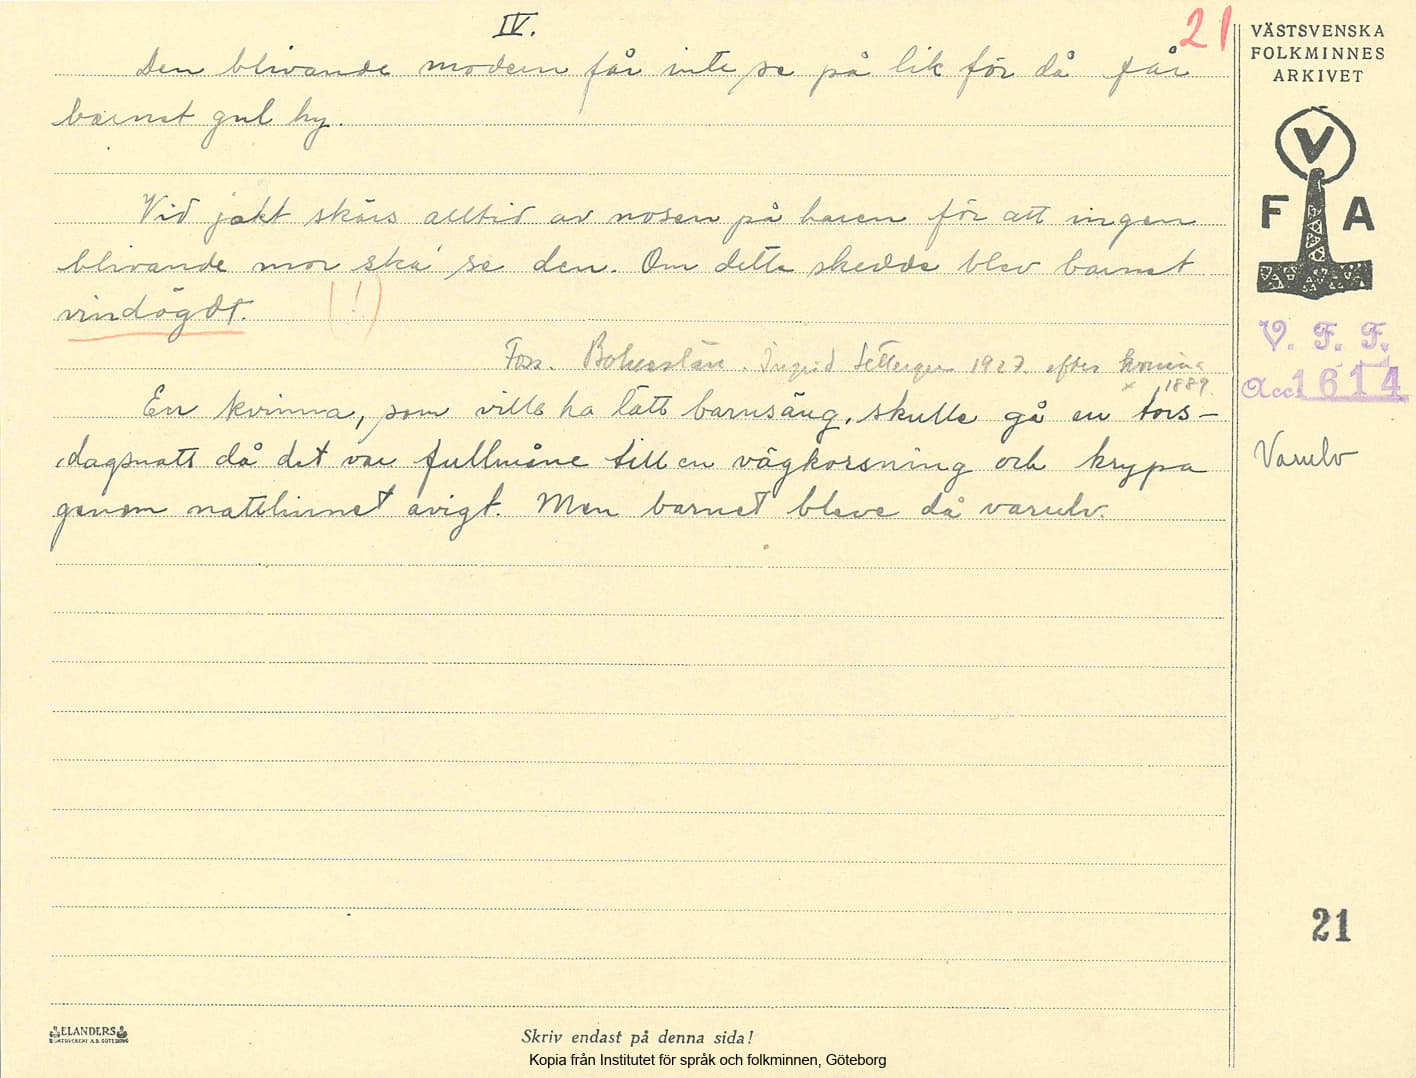 IV.
21
Den blivande modern får inte se på lik för då får
barnet gul hy.
Vid jakt skärs alltid av nosen på haren för att ingen
blivande mor ska' se den. Om detta skedde blev barnet
vindögdt. (!)
Foss. Bohuslän. Ingrid 1927 efter kvinna
x 1889.
En kvinna, som ville ha lätt barnsäng, skulle gå en tors-
dagsnatt då det var fullmåne till en vägkorsning och krypa
genom nattlinnet avigt. Men barnet bleve då varulv.
VÄSTSVENSKA
FOLKMINNES
ARKIVET
V
F A
V. F. F.
Acc. 1614
Varulv
21
ELANDERS
BOKTRYCKERI A.B. GÖTEBORG
Skriv endast på denna sida!
Kopia från Institutet för språk och folkminnen, Göteborg